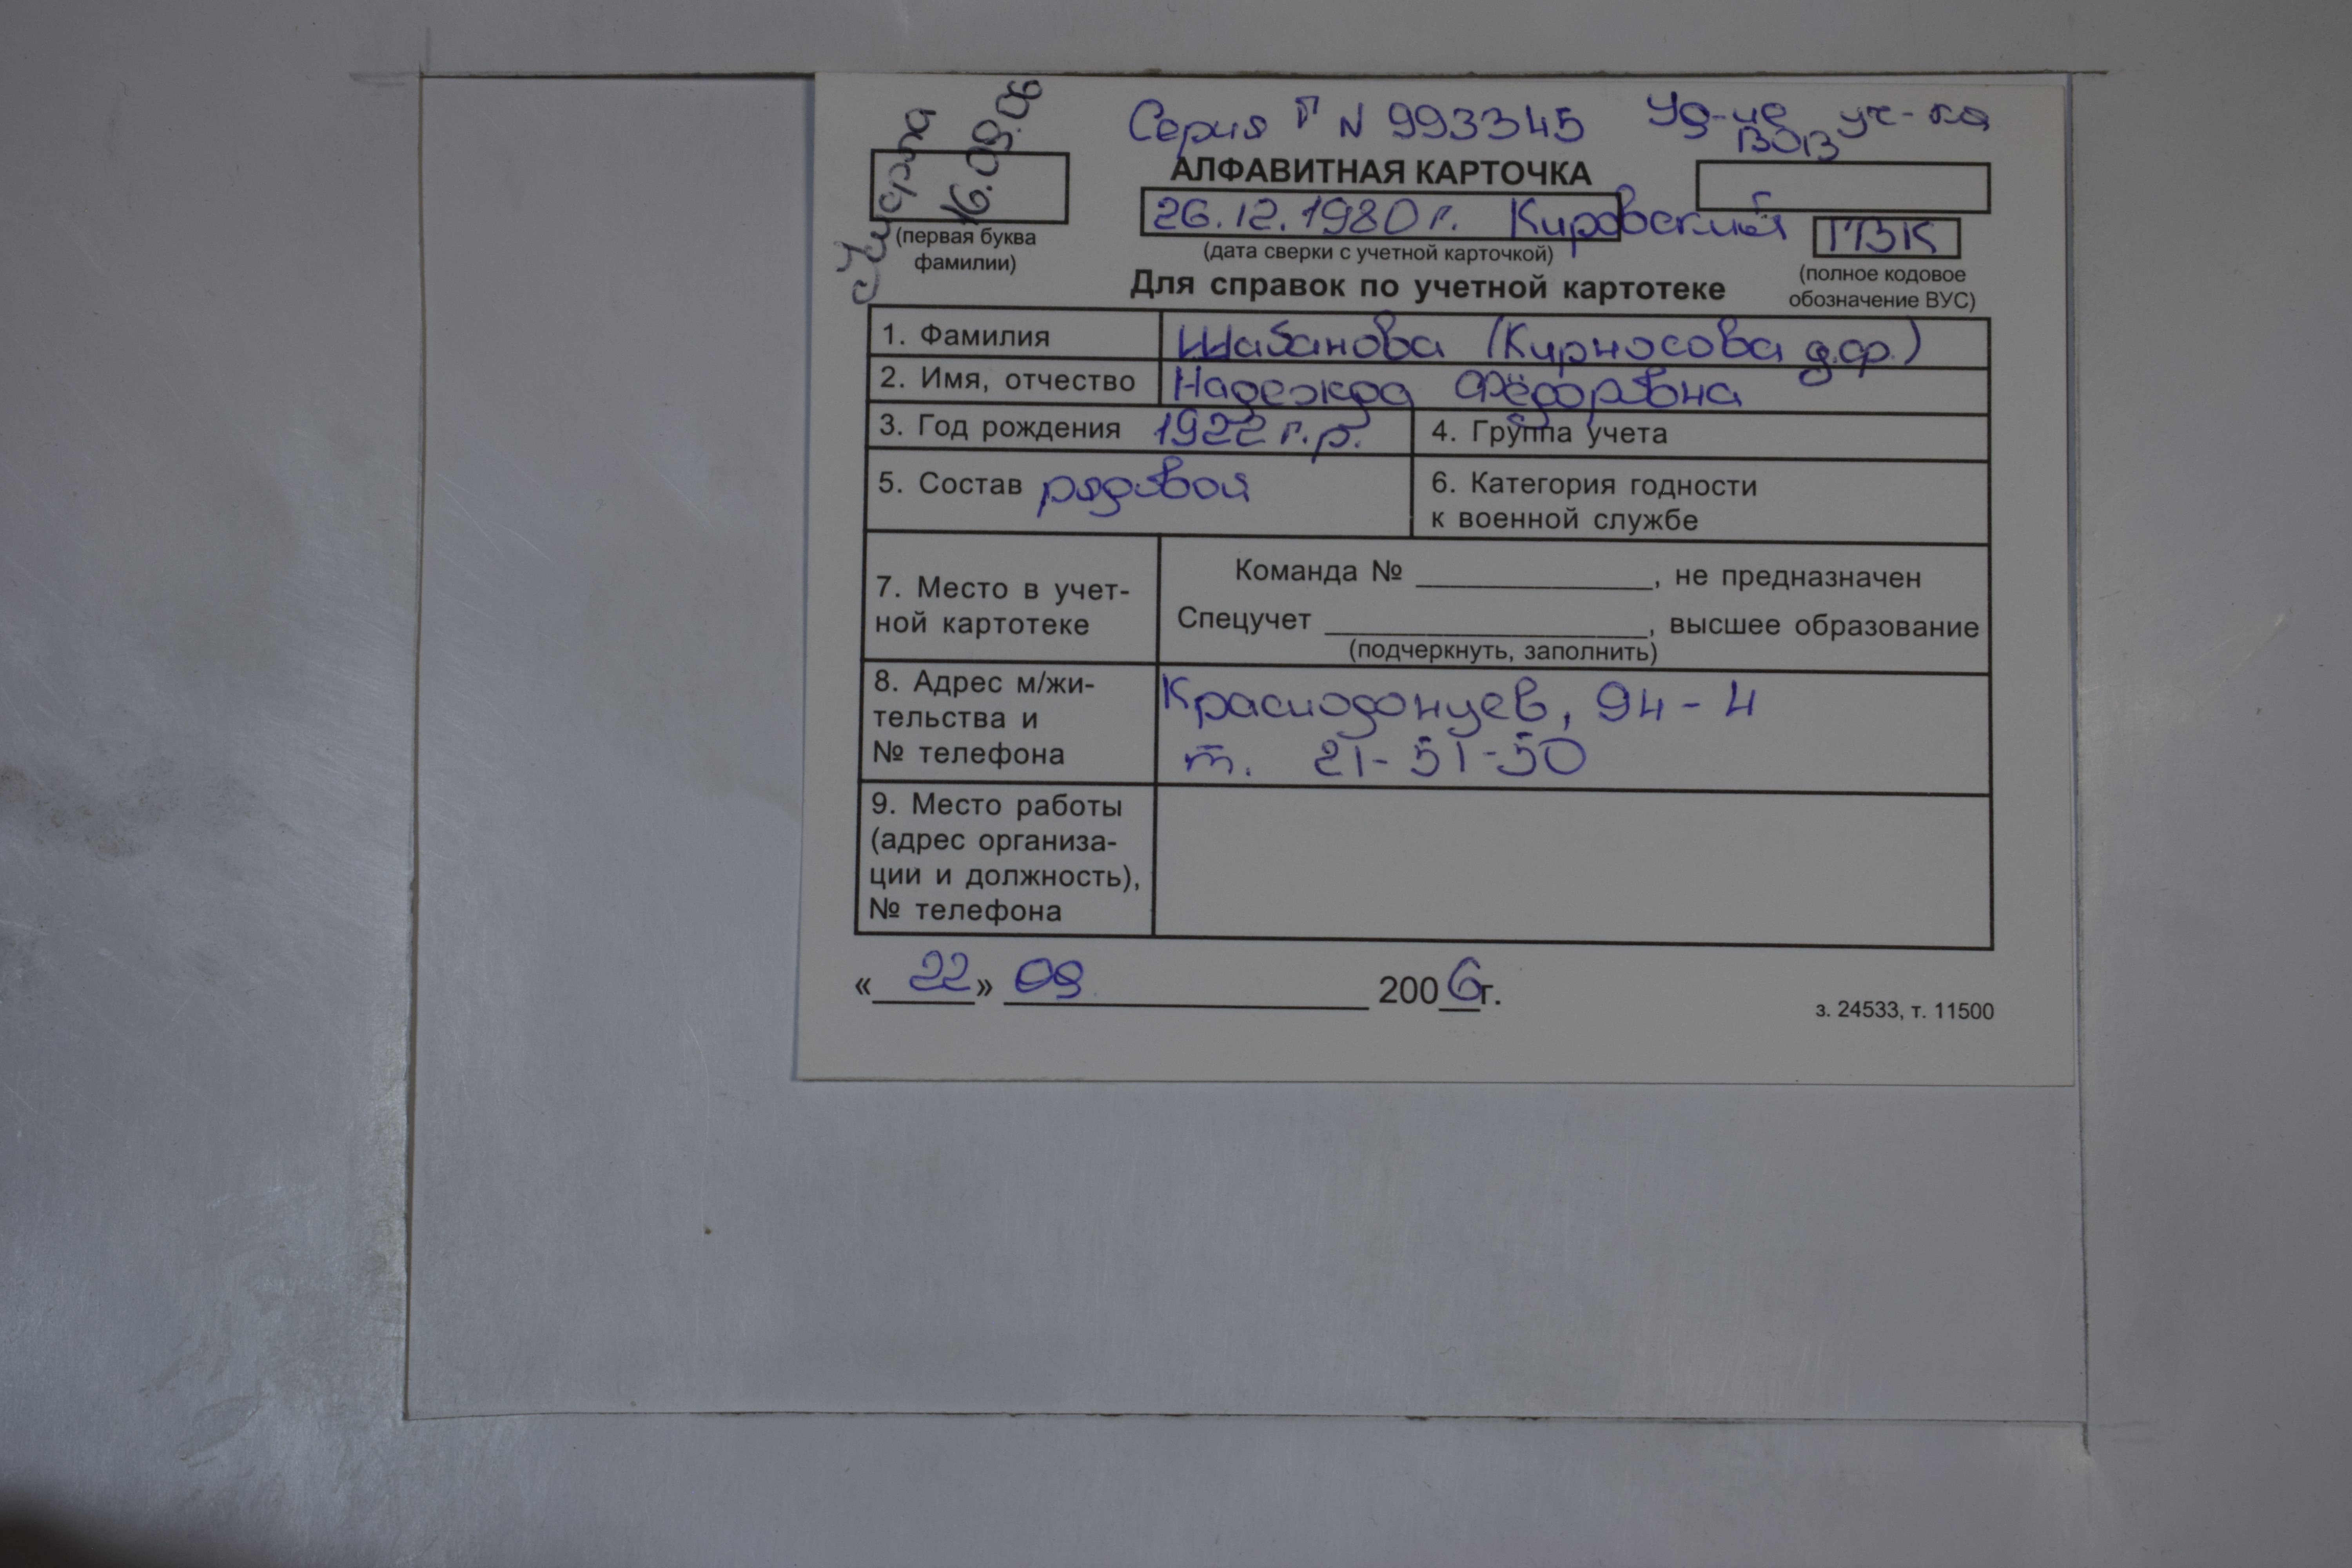 Умерла
16.09.06
Серия Г N 993345 Уд-ие уч-ка
ВОВ
АЛФАВИТНАЯ КАРТОЧКА
26.12.1980 г. Кировский ГВК
(первая буква
фамилии)
(дата сверки с учетной карточкой)
(полное кодовое
обозначение ВУС)
Для справок по учетной картотеке
1. Фамилия Шабанова (Кирносова д.ф.)
2. Имя, отчество Надежда Фёдоровна
3. Год рождения 1922 г.р. 4. Группа учета
5. Состав рядовой 6. Категория годности
к военной службе
7. Место в учет-
ной картотеке
Команда № ______________, не предназначен
Спецучет ____________________, высшее образование
(подчеркнуть, заполнить)
8. Адрес м/жи-
тельства и
№ телефона
Краснодонцев, 94 - 4
т. 21-51-50
9. Место работы
(адрес организа-
ции и должность),
№ телефона
« 22 » 09 2006 г.
з. 24533, т. 11500